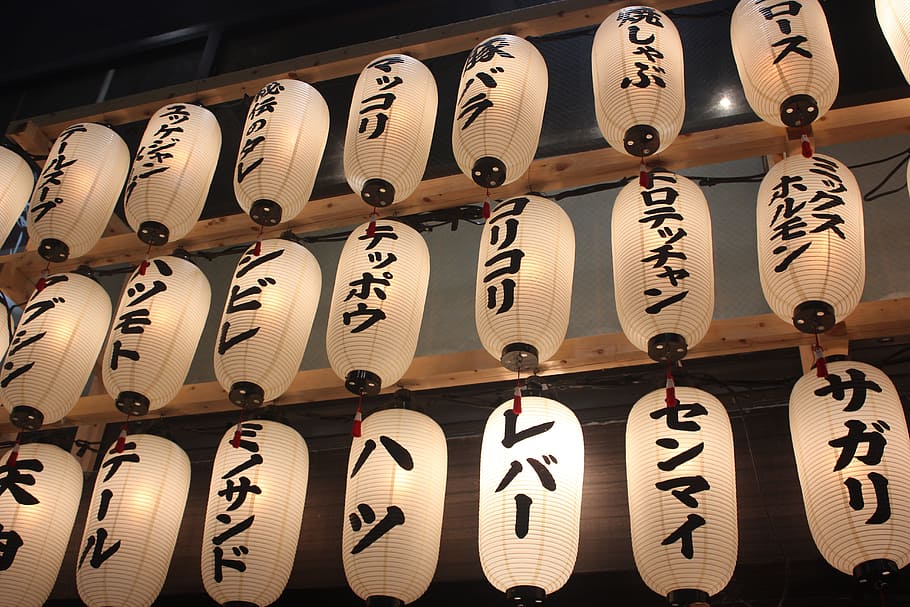 テールスープ
ユッケジャン
秘伝のタレ
マッコリ
豚バラ
焼しゃぶ
ロース
グジン
ハツモト
シビレ
テッポウ
コリコリ
トロテッチャン
ミックス
ホルモン
テール
ミノサンド
ハツ
レバー
センマイ
サガリ